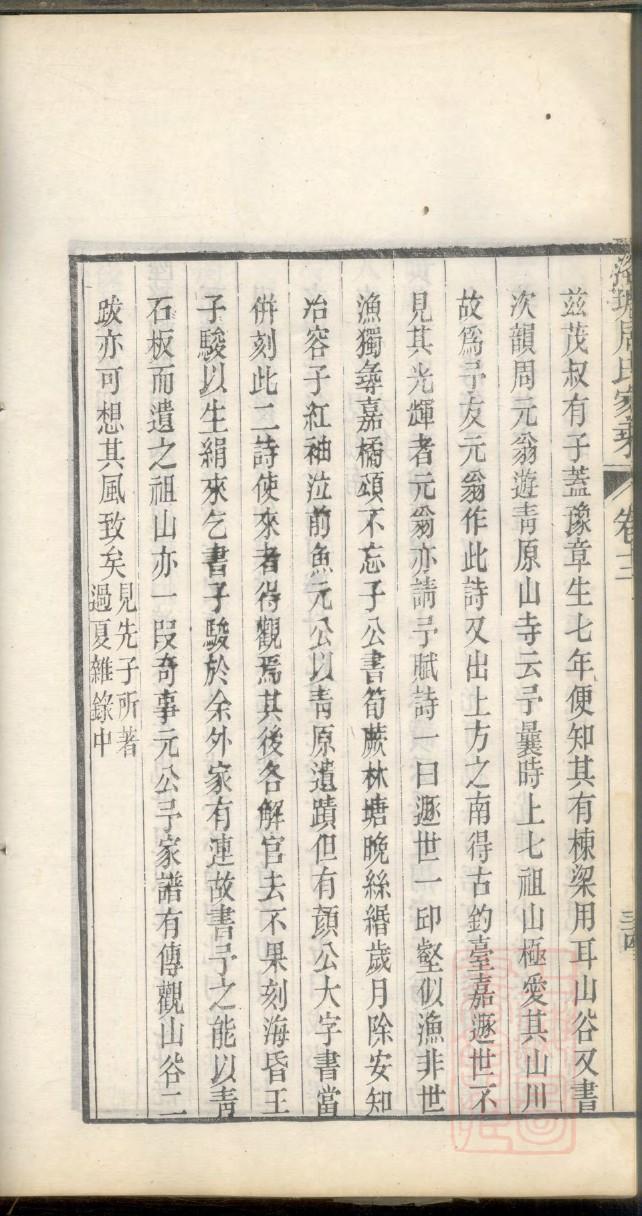 周氏家乘 卷十二 三四
茲茂叔有子蓋豫章生七年便知其有棟梁用耳山谷又書
次韻周元翁遊青原山寺云予曩時上七祖山極愛其山川
故爲予友元翁作此詩又出上方之南得古釣臺嘉遯世不
見其光輝者元翁亦請予賦詩一曰遯世一邱壑似漁非世
漁獨彝嘉橘頌不忘子公書筍蕨林塘晚絲緡歲月除安知
冶容子紅袖泣前魚元公以青原遺蹟但有顏公大字書當
併刻此二詩使來者得觀焉其後各解官去不果刻海昏王
子駿以生絹來乞書子駿於余外家有連故書予之能以青
石板而遺之祖山亦一段奇事元公予家譜有傳觀山谷二
跋亦可想其風致矣見先子所著
過夏雜錄中